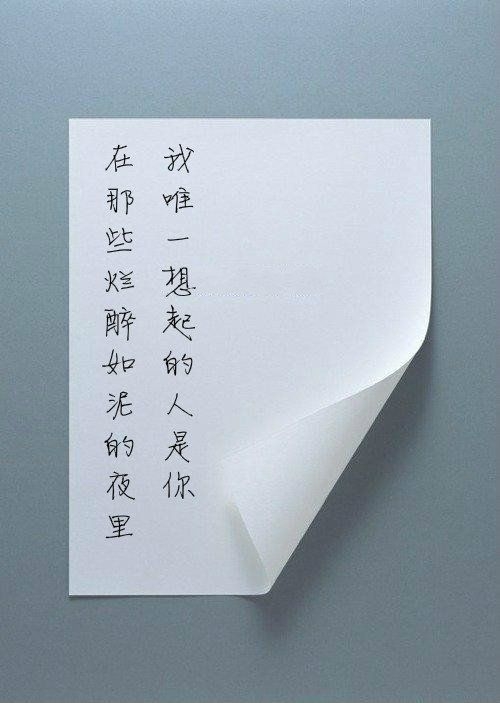 在那些烂醉如泥的夜里
我唯一想起的人是你